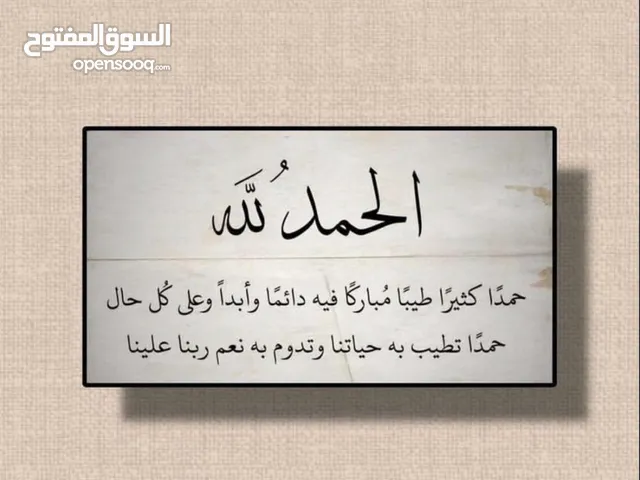 السوق المفتوح
opensooq.com
الحمدُ لله
حمدًا كثيرًا طيبًا مُباركًا فيه دائمًا وأبداً وعلى كُل حال
حمدًا تطيب به حياتنا وتدوم به نعم ربنا علينا